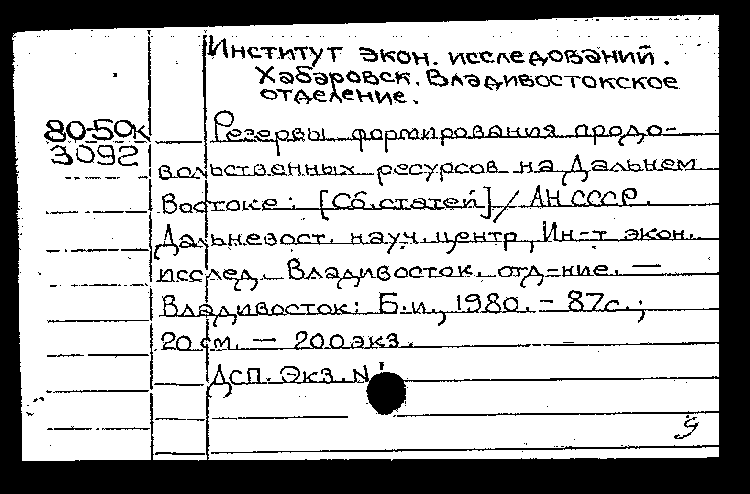 Институт экон. исследований.
Хабаровск. Владивостокское
отделение.
80-50к
3092
Резервы формирования продо-
вольственных ресурсов на Дальнем
Востоке: [Сб.статей] / АН СССР.
Дальневост. науч. центр, Ин-т экон.
исслед. Владивосток. отд-ние. —
Владивосток: Б.и., 1980. - 87с.;
20 см. — 200 экз.
ДСП. Экз. N